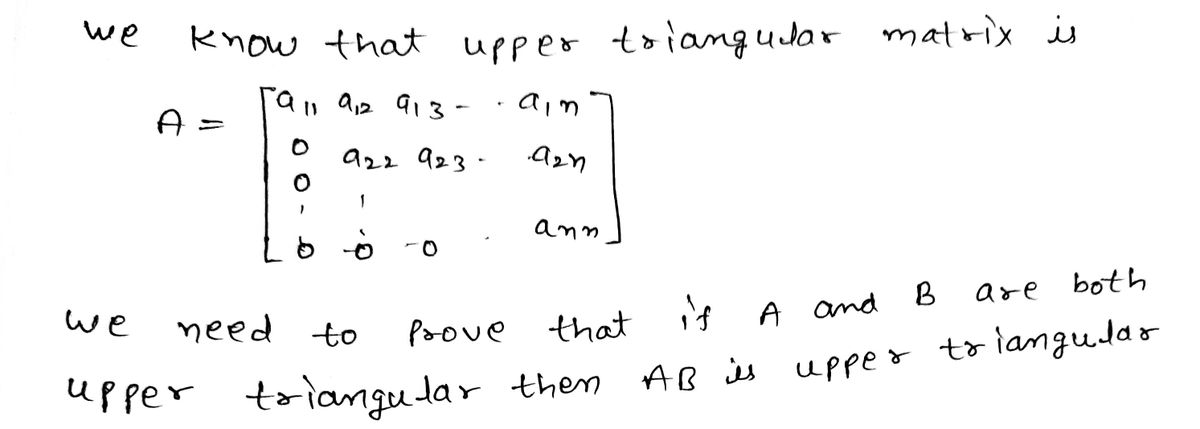 we know that upper triangular matrix is
A = [a11 a12 a13 - · a1n
0 a22 a23 · · a2n
0
' '
0 0 -0 · ann]
we need to prove that if A and B are both
upper triangular then AB is upper triangular